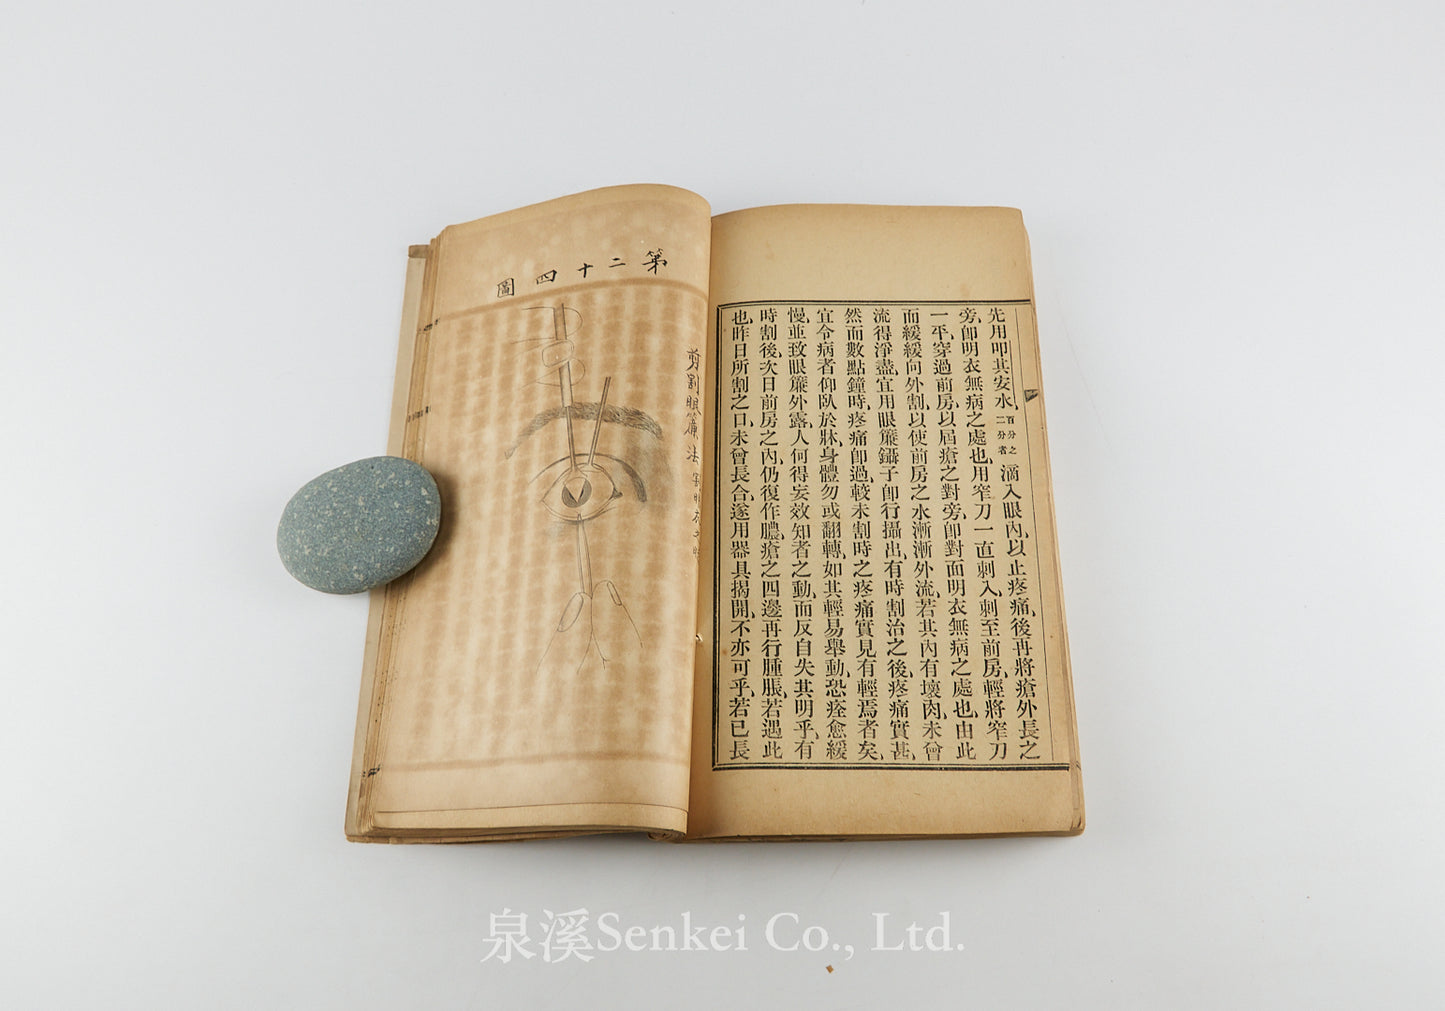 先用叩其安水、百分之二分者滴入眼內、以止疼痛、後再將瘡外長之
旁、卽明衣無病之處也、用窄刀一直刺入、刺至前房、輕將窄刀
一平、穿過前房、以屆瘡之對旁、卽對面明衣無病之處也、由此
而緩緩向外割、以使前房之水漸漸外流、若其內有壞肉、未曾
流得淨盡、宜用眼簾鑷子卽行攝出、有時割治之後、疼痛實甚、
然而數點鐘時、疼痛卽過、較未割時之疼痛、實見有輕焉者矣、
宜令病者仰臥於牀、身體勿或翻轉、如其輕易舉動、恐痊愈緩
慢、並致眼簾外露、人何得妄效知者之動、而反自失其明乎、有
時割後、次日前房之內、仍復作膿、瘡之四邊、再行腫脹、若遇此
也、昨日所割之口、未曾長合、遂用器具揭開、不亦可乎、若已長
第二十四圖
剪割眼簾法
泉溪Senkei Co., Ltd.